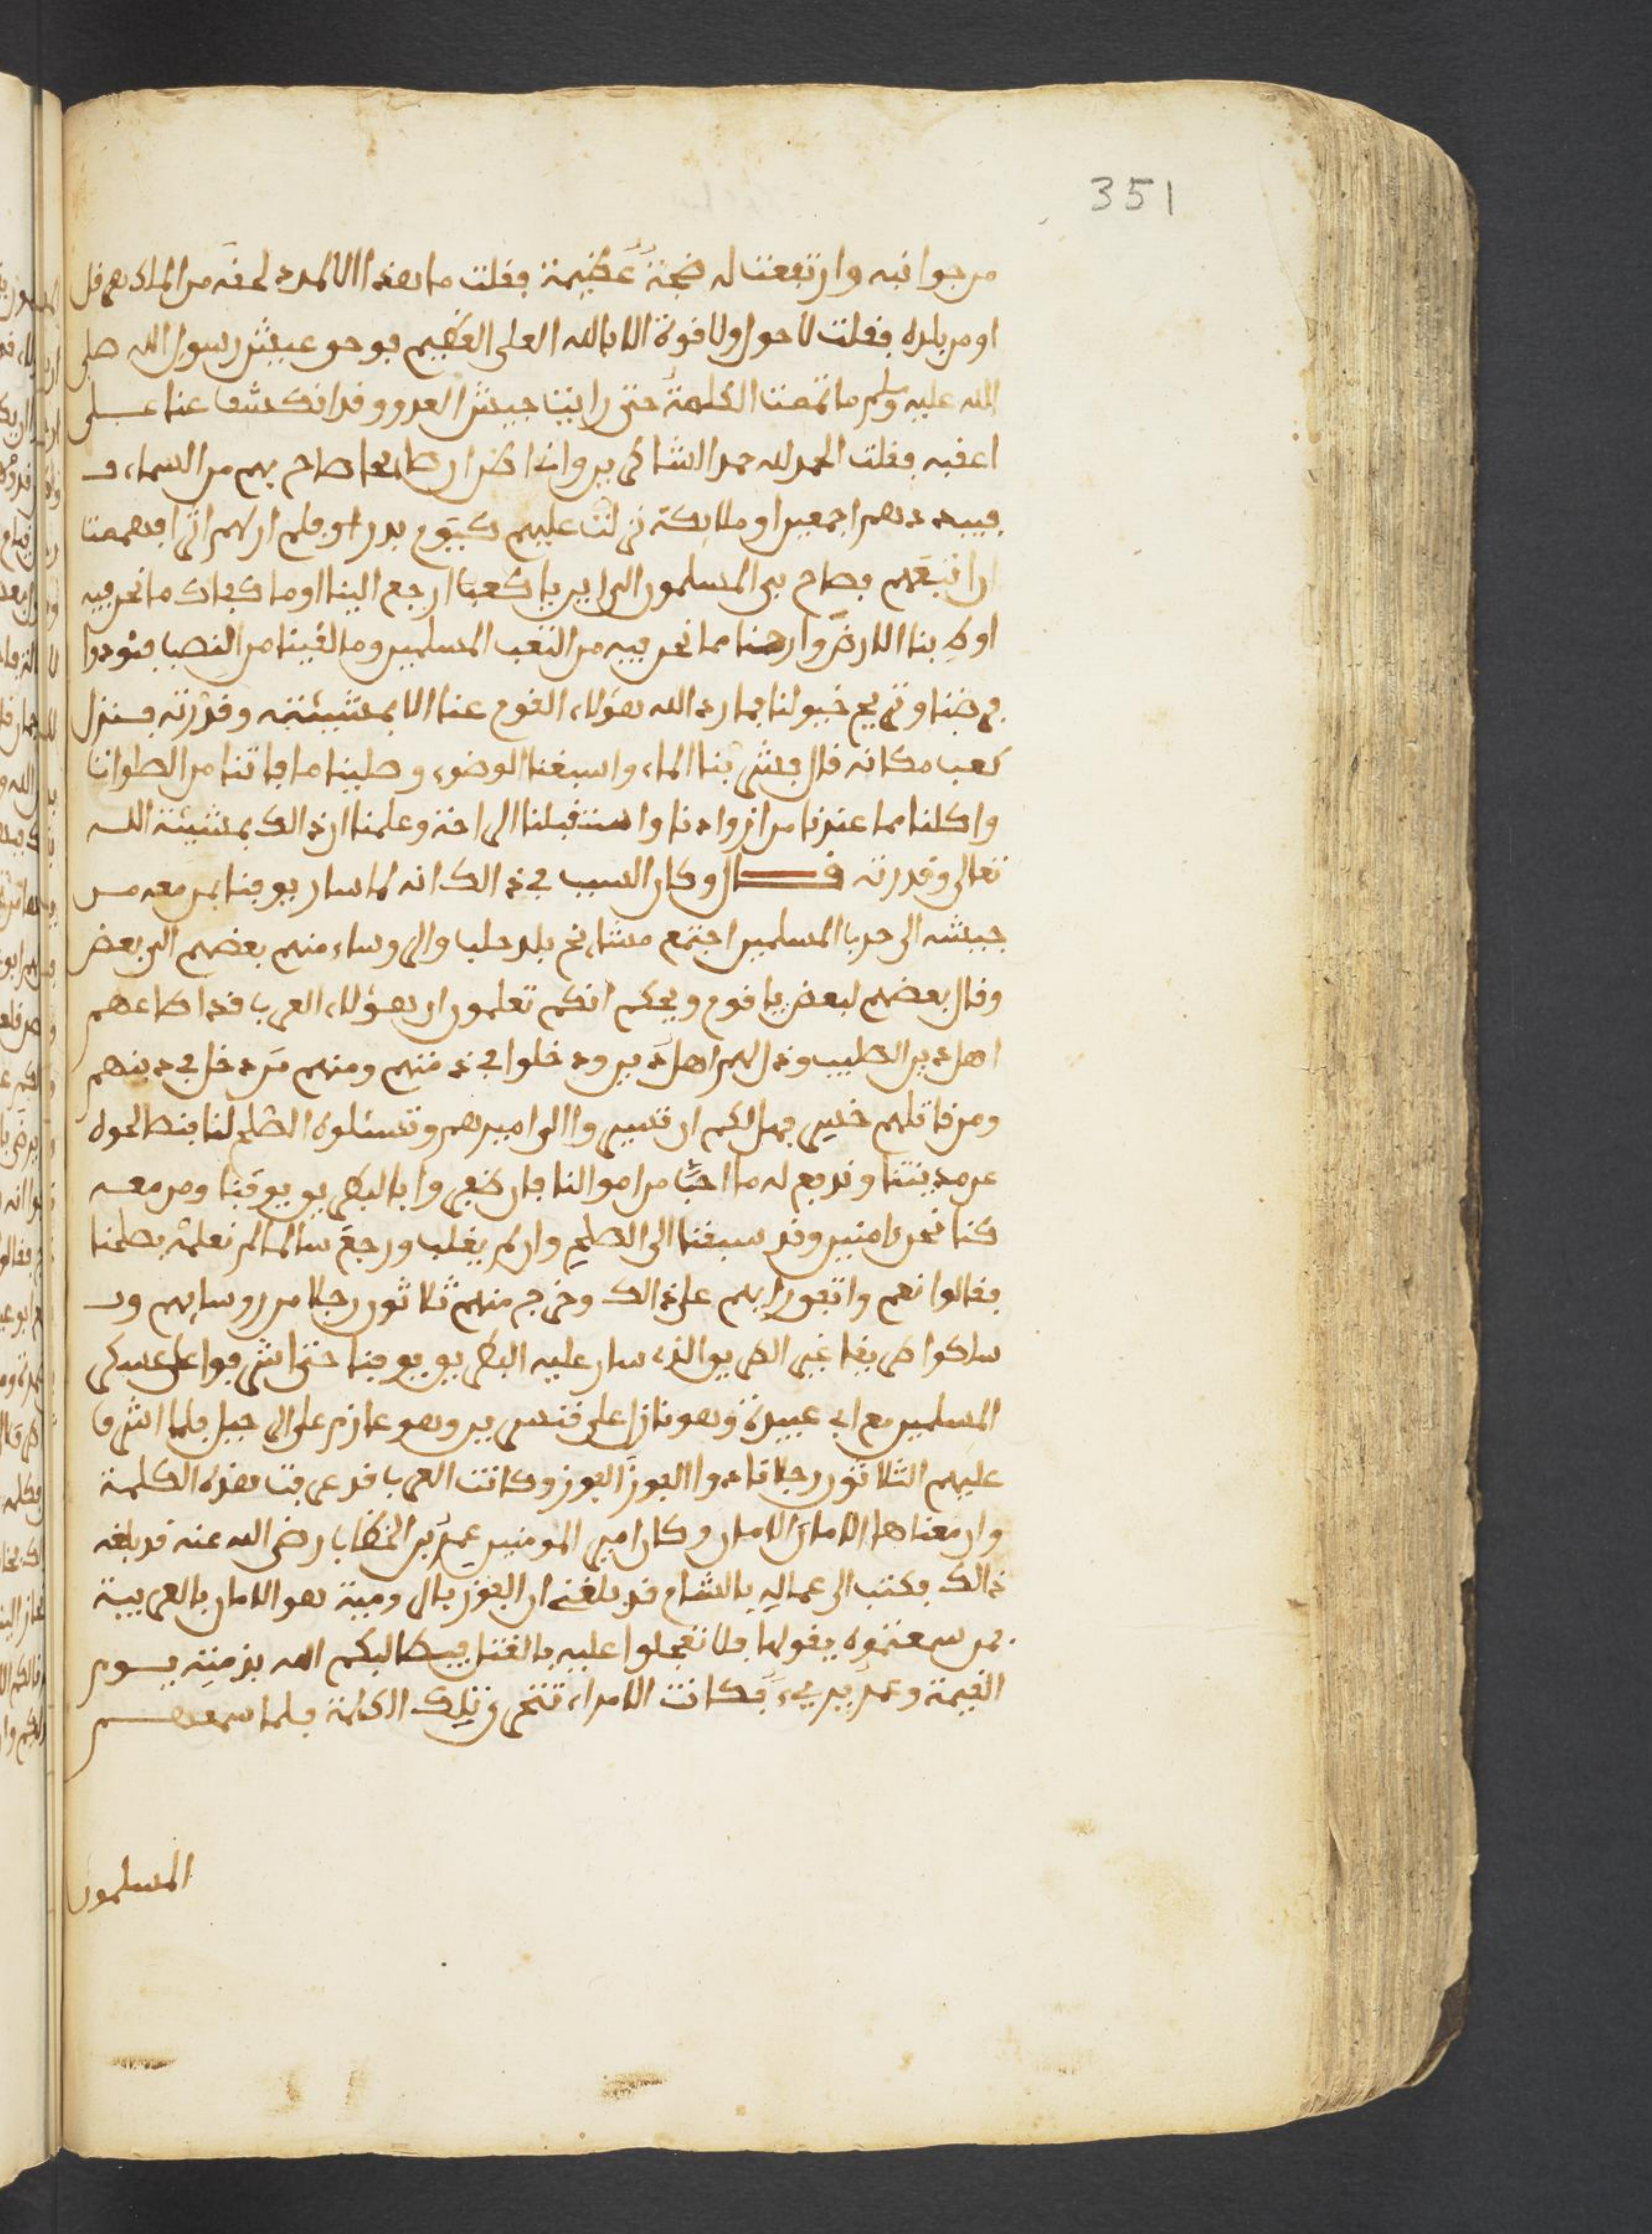 351
من جوانبه وارتفعت له ضجة عظيمة فقلت ما هذا الا المدد لحقه من الملك هرقل
او من بلده فقلت لا حول ولا قوة الا بالله العلى العظيم فوحق عيش رسول الله صلى
الله عليه وسلم ما تممت الكلمة حتى رايت جيش العدو وقد انكشف عنا على
اعقبه فقلت الحمد لله حمد الشاكرين وانا اظن ان صايحا صاح بهم من السماء
فيبددهم اجمعين او ملايكة نزلت عليهم كيوم بدر فلم ار لهم اثرا فهممت
ان اتبعهم فصاح بى المسلمون الى اين يا كعب ارجع الينا او ما كفاك ما نحن فيه
اول بنا الارض وارحنا مما نحن فيه من التعب المسلمين وما لقينا من النصب فنودوا
فرضنا ونريح خيولنا فما رد الله هؤلاء القوم عنا الا بمشيئته وقدرته فنزل
كعب مكانه قال فشربنا الماء واسبغنا الوضوء وصلينا ما فاتنا من الصلوات
واكلنا مما عندنا من ازوادنا واستقبلنا الراحة وعلمنا ان ذالك بمشيئة الله
تعالى وقدرته قال وكان السبب في ذالك انه لما سار يوفنا بمن معه من
جيشه الى حرب المسلمين اجتمع مشايخ بلد حلب والروساء منهم بعضهم الى بعض
وقال بعضهم لبعض يا قوم ويحكم انكم تعلمون ان هؤلاء العرب قد اطاعهم
اهل دير الصليب وذل لهم اهل دير ودخلوا في ذمتهم ومنهم من دخل في دينهم
ومن قاتلهم خسر فهل لكم ان تسيروا الى اميرهم وتسئلوه الصلح لنا فنصالحوه
عن مدينتنا وندفع له ما احب من اموالنا فان ظفر وا بالبطريو يوفنا ومن معه
كنا نحن امنين وقد سبقنا الى الصلح وان لم يغلب ورجع سالما لم نعلمه بصلحنا
فقالوا نعم واتفق رايهم على ذالك وخرج منهم ثلاثون رجلا من روسايهم و
سلكوا طريقا غير الطريق الذى سار عليه البطريق يوفنا حتى اشرفوا على عسكر
المسلمين مع ابى عبيدة وهو نازل على قنسرين وهو عازم على الرحيل فلما اشرف
عليهم الثلاثون رجلا نادوا الغوز الغوز وكانت العرب قد عرفت هذه الكلمة
وان معناها الامان الامان وكان امير المومنين عمر بن الخطاب رضى الله عنه قد بلغه
ذالك فكتب الى عماله بالشام قد بلغنى ان الغوز بالرومية هو الامان بالعربية
فمن سمعتموه يقولها فلا تعجلوا عليه بالقتل فيطالبكم الله بذمته يوم
القيمة وعمر برىء فكانت الامراء تتحرى وتلك الكلمة فلما سمعهم
المسلمون